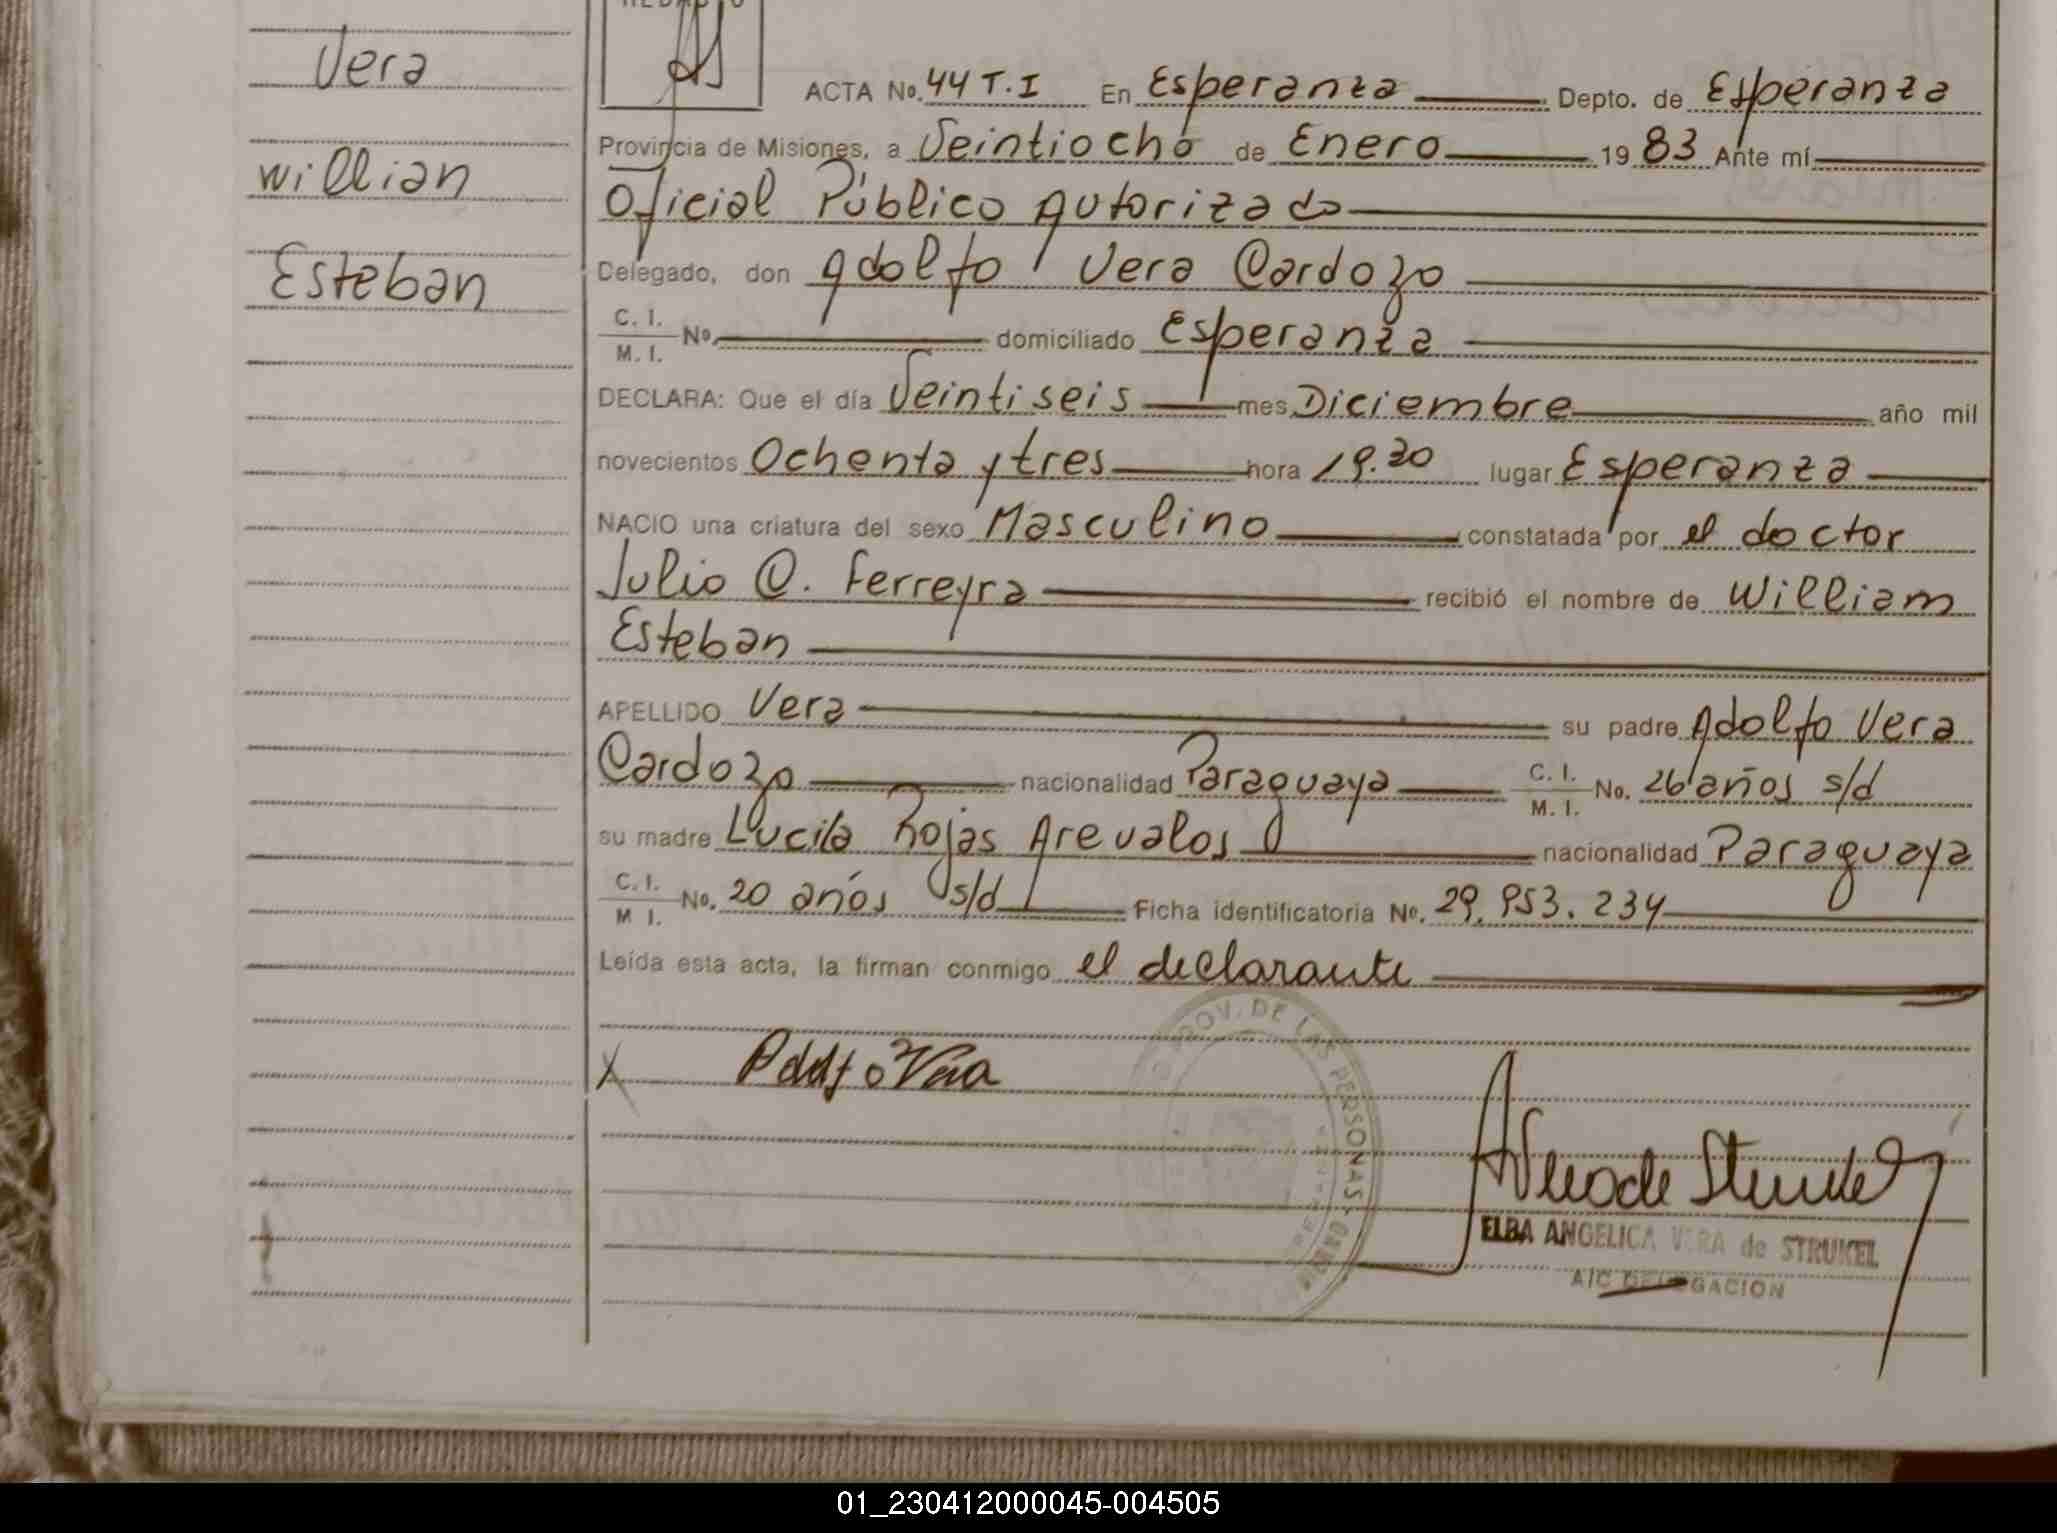 Vera
willian
Esteban
ACTA No. 44 T.I En Esperanza Depto. de Esperanza
Provincia de Misiones, a Veintiocho de Enero 19 83 Ante mí
Oficial Público Autorizado
Delegado, don Adolfo Vera Cardozo
C. I.
M. I. No. domiciliado Esperanza
DECLARA: Que el día Veintiseis mes Diciembre año mil
novecientos Ochenta y tres hora 19.30 lugar Esperanza
NACIO una criatura del sexo Masculino constatada por el doctor
Julio C. Ferreyra recibió el nombre de William
Esteban
APELLIDO Vera su padre Adolfo Vera
Cardozo nacionalidad Paraguaya C. I. M. I. No. 26 años s/d
su madre Lucila Rojas Arevalos nacionalidad Paraguaya
C. I. M I. No. 20 años s/d Ficha identificatoria No. 29.953.234
Leída esta acta, la firman conmigo el declarante
PROV. DE LAS PERSONAS
X Adolfo Vera
AVera de Strukel
ELBA ANGELICA VERA de STRUKEL
A/C DELEGACION
01_230412000045-004505